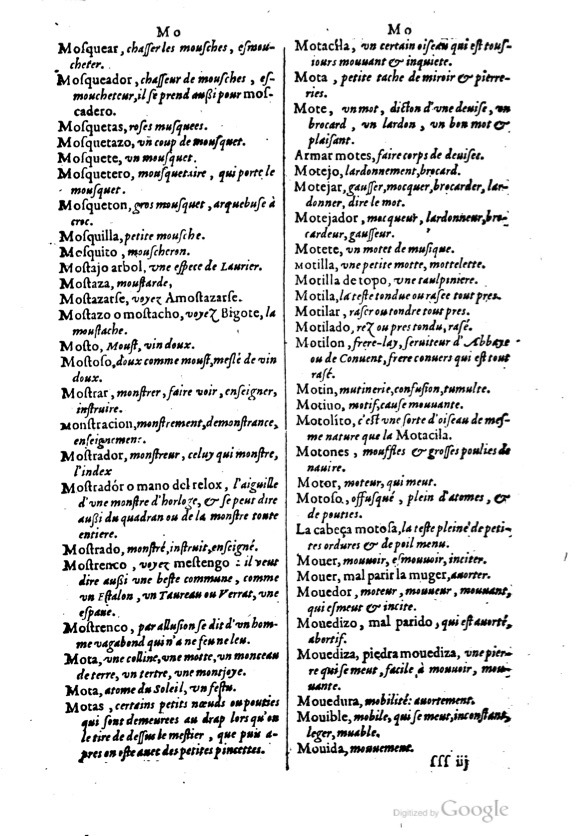 Mo
Mosquear, chasser les mousches, esmou-
cheter.
Mosqueador, chasseur de mousches, es-
moucheteur, il se prend aussi pour mos-
cadero.
Mosquetas, roses musquees.
Mosquetazo, un coup de mousquet.
Mosquete, vn mousquet.
Mosquetero, mousquetaire, qui porte le
mousquet.
Mosqueton, gros mousquet, arquebuse à
croc.
Mosquilla, petite mousche.
Mosquito, mouscheron.
Mostajo arbol, vne espece de Laurier.
Mostaza, moustarde,
Mostazarse, voyez Amostazarse.
Mostazo o mostacho, voyez Bigote, la
moustache.
Mosto, Moust, vin doux.
Mostoso, doux comme moust, meslé de vin
doux.
Mostrar, monstrer, faire voir, enseigner,
instruire.
Monstracion, monstrement, demonstrance,
enseignement.
Mostrador, monstreur, celuy qui monstre,
l'index
Mostradór o mano del relox, l'aiguille
d'vne monstre d'horloge, & se peut dire
aussi du quadran ou de la monstre toute
entiere.
Mostrado, monstré, instruit, enseigné.
Mostrenco, voyez mestengo : il veut
dire aussi vne beste commune, comme
vn Estalon, vn Taureau ou Verrat, vne
espaue.
Mostrenco, par allusion se dit d'vn hom-
me vagabond qui n'a ne feu ne leu.
Mota, vne colline, vne motte, vn monceau
de terre, vn tertre, vne montjoye.
Mota, atome du Soleil, vn festu.
Motas, certains petits nœuds ou pouties
qui sont demeurees au drap lors qu'on
le tire de dessus le mestier, que puis a-
pres on oste auec des petites pincettes.
Mo
Motacila, vn certain oiseau qui est tous-
iours mouuant & inquiete.
Mota, petite tache de miroir & pierre-
ries.
Mote, vn mot, dicton d'vne deuise, vn
brocard, vn lardon, vn bon mot &
plaisant.
Armar motes, faire corps de deuises.
Motejo, lardonnement, brocard.
Motejar, gausser, mocquer, brocarder, lar-
donner, dire le mot.
Motejador, mocqueur, lardonneur, bro-
cardeur, gausseur.
Motete, vn motet de musique.
Motilla, vne petite motte, mottelette.
Motilla de topo, vne taulpiniere.
Motila, la teste tondue ou rasee tout pres.
Motilar, raser ou tondre tout pres.
Motilado, rez ou pres tondu, rasé.
Motilon, frere-lay, seruiteur d'Abbaye
ou de Conuent, frere conuers qui est tout
rasé.
Motin, mutinerie, confusion, tumulte.
Motiuo, motif, cause mouuante.
Motolito, c'est vne sorte d'oiseau de mes-
me nature que la Motacila.
Motones, mouffles & grosses poulies de
nauire.
Motor, moteur, qui meut.
Motoso, offusqué, plein d'atomes, &
de pouties.
La cabeça motosa, la teste pleine de peti-
tes ordures & de poil menu.
Mouer, mouuoir, esmouuoir, inciter.
Mouer, mal parir la muger, auorter.
Mouedor, moteur, mouueur, mouuant,
qui esmeut & incite.
Mouedizo, mal parido, qui est auorté,
abortif.
Mouediza, piedra mouediza, vne pier-
re qui se meut, facile à mouuoir, mou-
uante.
Mouedura, mobilité: auortement.
Mouible, mobile, qui se meut, inconstant,
leger, muable.
Mouida, mouuement.
sss iij
Digitized by Google